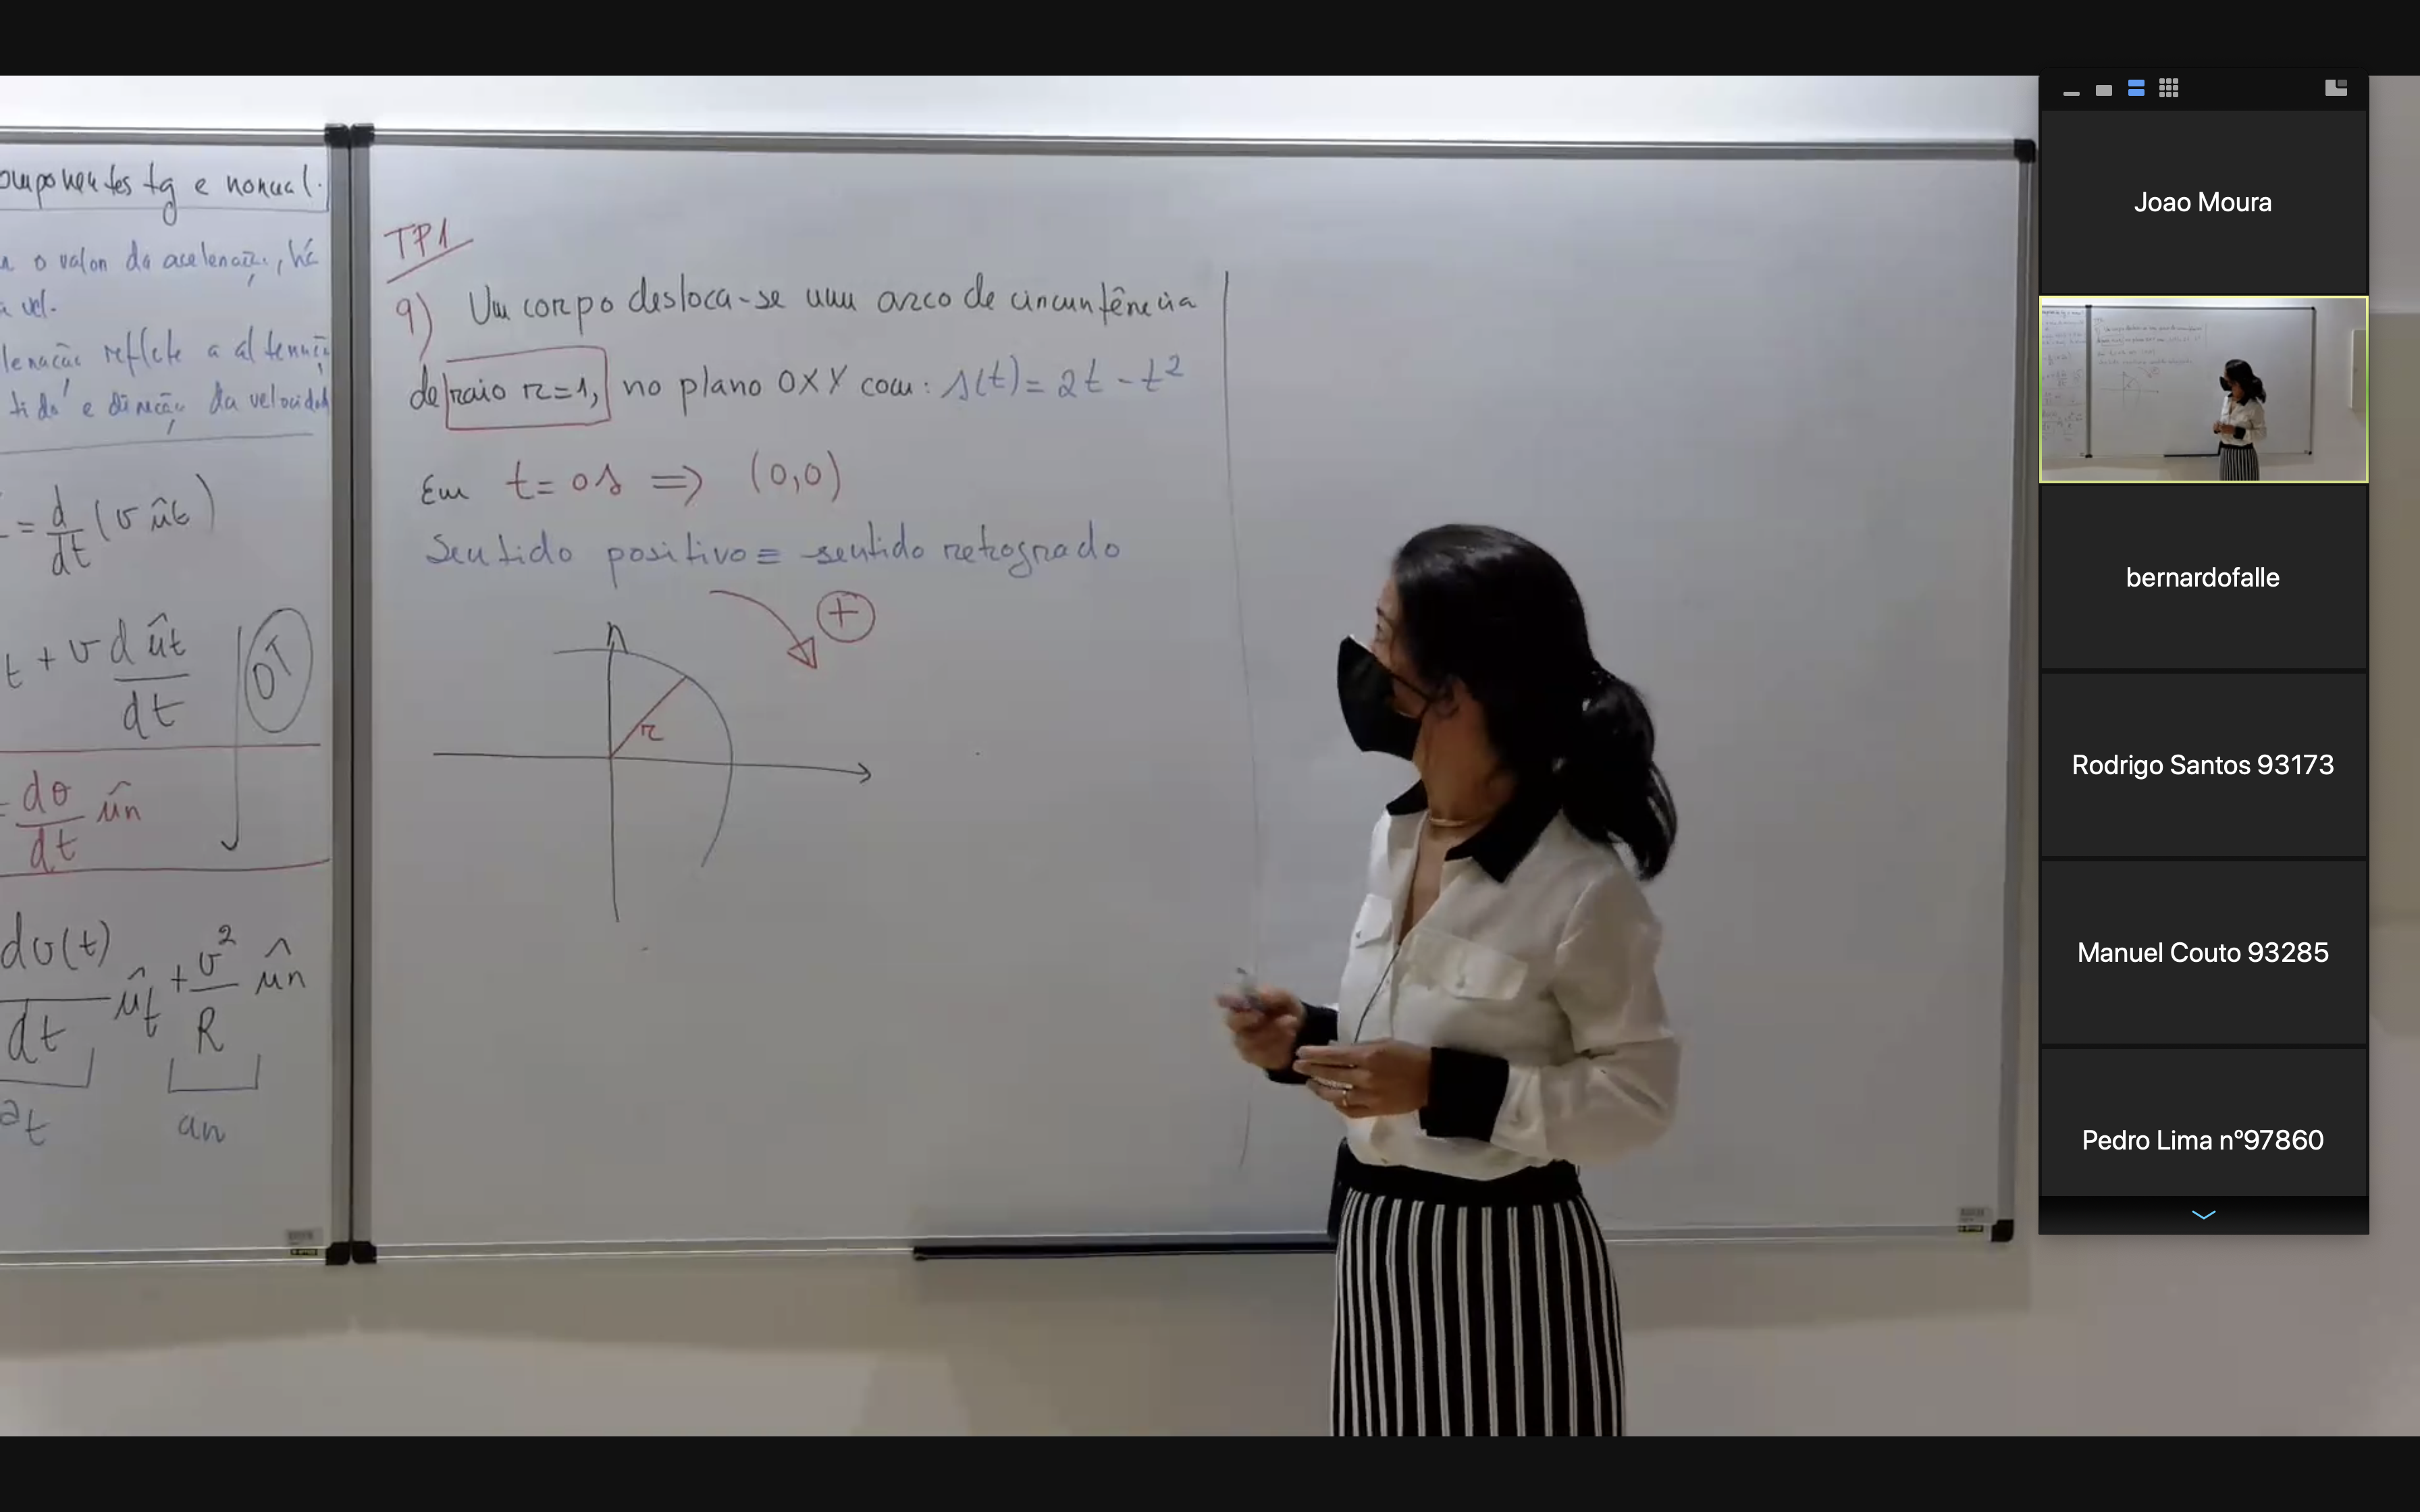 componentes tg e normal.
o valor da aceleração, há
a vel.
leração reflete a alteração
tido e direção da velocidad
= d/dt (v ût)
t + v d ût/dt
DT
= dθ/dt ûn
dv(t)/dt ût + v²/R ûn
at an
TP1
9) Um corpo desloca-se num arco de circunferência
de raio r=1, no plano OXY com: s(t) = 2t - t²
Em t=0s => (0,0)
Sentido positivo ≡ sentido retrogrado
+
r
Joao Moura
bernardofalle
Rodrigo Santos 93173
Manuel Couto 93285
Pedro Lima nº97860